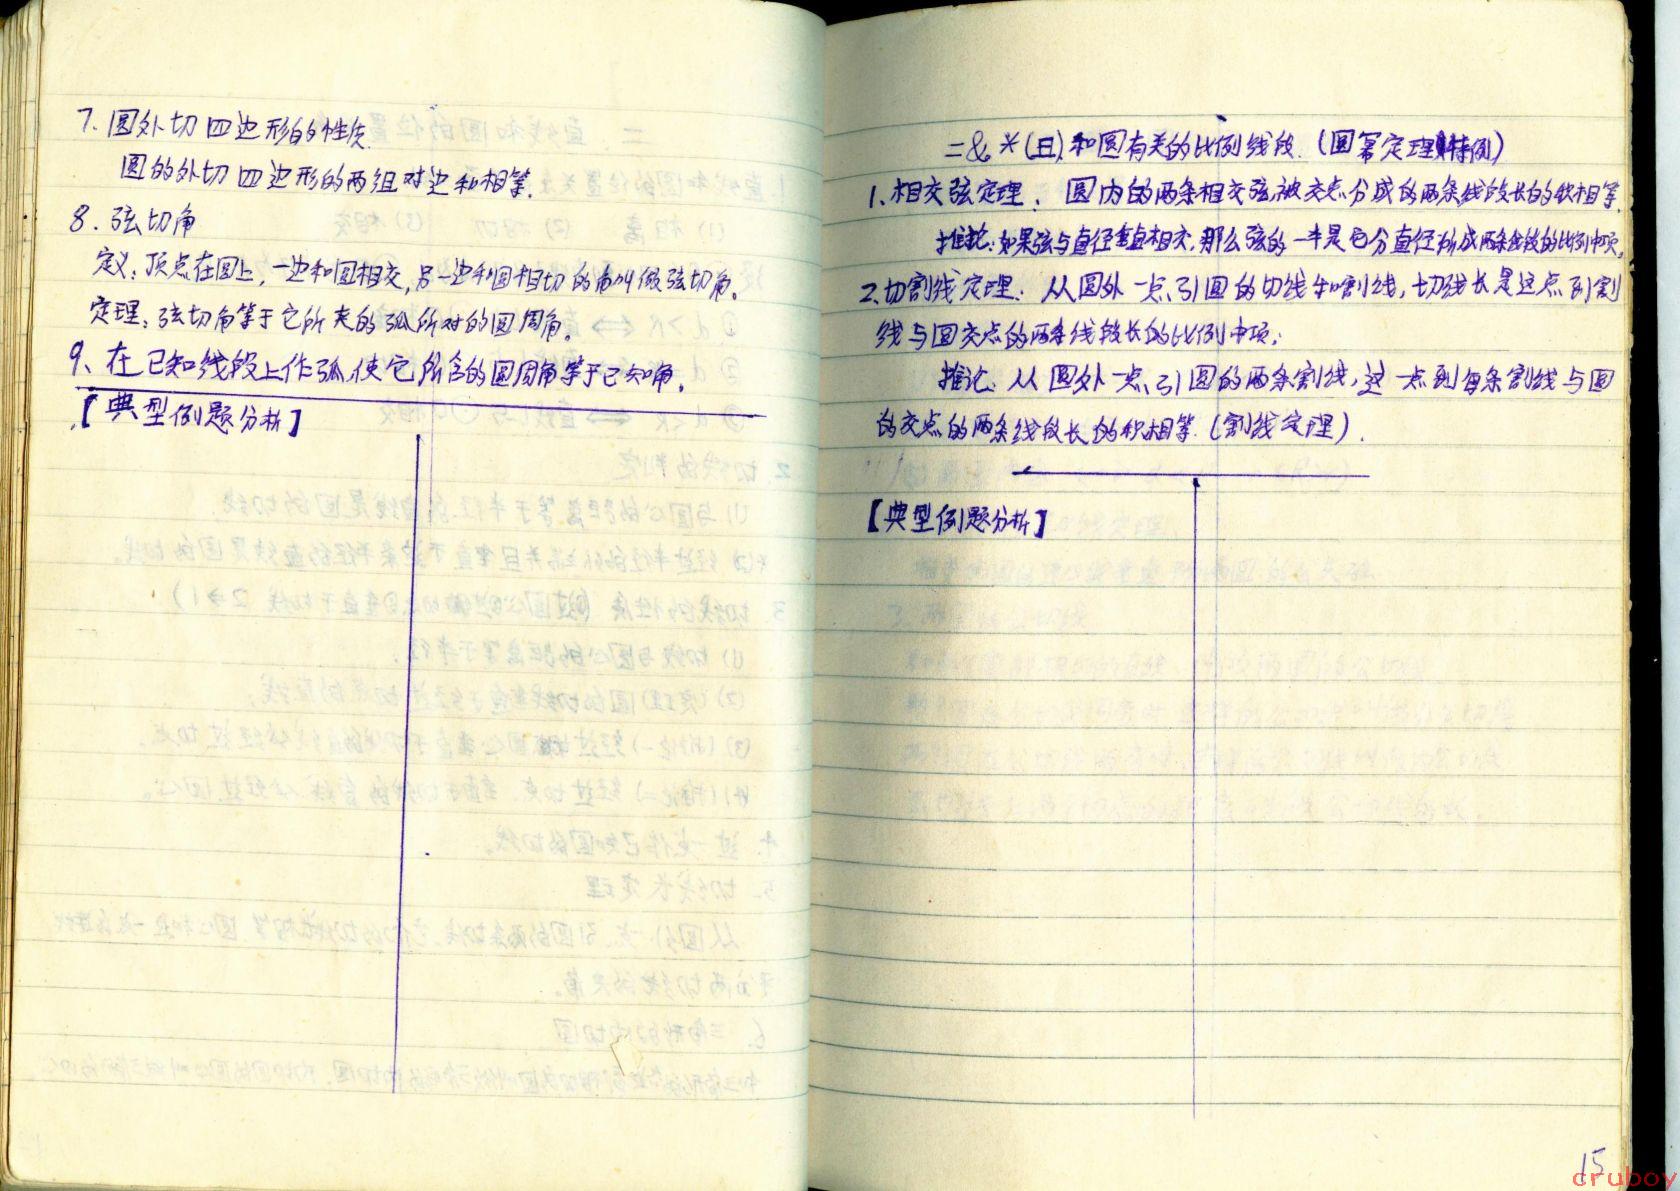 7. 圆外切四边形的性质
圆的外切四边形的两组对边和相等.
8. 弦切角
定义: 顶点在圆上, 一边和圆相交, 另一边和圆相切的角叫做弦切角.
定理: 弦切角等于它所夹的弧所对的圆周角.
9. 在已知线段上作弧, 使它所含的圆周角等于已知角.
【典型例题分析】
二& *(五) 和圆有关的比例线段. (圆幂定理特例)
1. 相交弦定理. 圆内的两条相交弦, 被交点分成的两条线段长的积相等.
推论: 如果弦与直径垂直相交, 那么弦的一半是它分直径所成两条线段的比例中项.
2. 切割线定理. 从圆外一点引圆的切线和割线, 切线长是这点到割
线与圆交点的两条线段长的比例中项.
推论. 从圆外一点引圆的两条割线, 这一点到每条割线与圆
的交点的两条线段长的积相等. (割线定理).
【典型例题分析】
15
cruboy